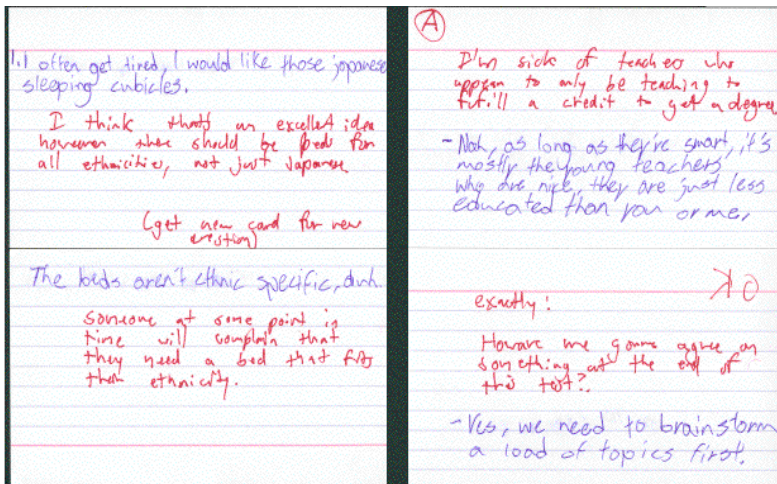 1.) I often get tired, I would like those japanese
sleeping cubicles.
I think that's an excellent idea
however there should be beds for
all ethnicities, not just Japanese
(get new card for new
question)
The beds aren't ethnic specific, duh.
Someone at some point in
time will complain that
they need a bed that fits
their ethnicity.
A
I'm sick of teachers who
appear to only be teaching to
fufill a credit to get a degree
- Nah, as long as they're smart, it's
mostly the young teachers
who are nice, they are just less
educated than you or me,
OK
exactly!
How are we gonna agree on
something at the end of
this test?
- Yes, we need to brainstorm
a load of topics first.